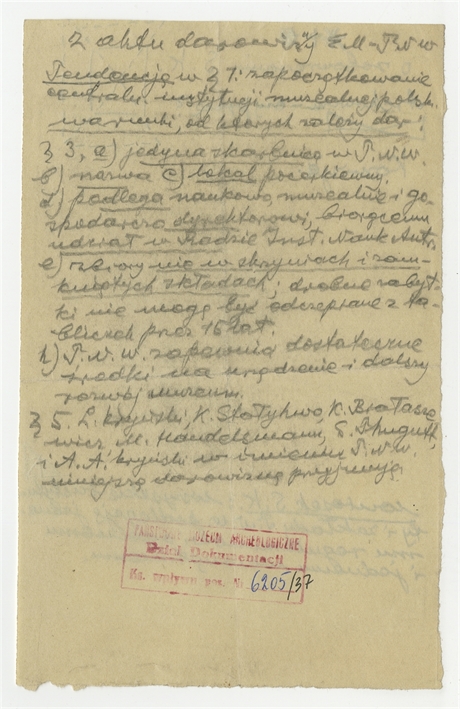 z aktu darowizny E.M – T.N.W
Tendencja w § 1: zapoczątkowanie
centralnej instytucji muzealnej polsk.
warunki, od których zależy dar:
§ 3, a) jedyna skarbnica w T.N.W.
b) nazwa c) lokal pocerkiewny.
d) podlega naukowo, muzealnie i go-
spodarczo dyrektorowi, biorącemu
udział w Radzie Inst. Nauk Antr.
e) zbiory nie w skrzyniach i zam-
kniętych składach; drobne zabyt-
ki nie mogą być odczepiane z ta-
bliczek przez 15 lat.
h) T.N.W. zapewnia dostateczne
środki na urządzenie i dalszy
rozwój muzeum.
§ 5. L. Krzywicki, K. Stołyhwo, K. Białasze
wicz M. Handelsmann, S. Thugutt,
i A. A. Kryński w imieniu T.N.W.
niniejszą darowiznę przyjmują.
PAŃSTWOWE MUZEUM ARCHEOLOGICZNE
Dział Dokumentacji
Ks. wpływu poz. Nr 6205/37